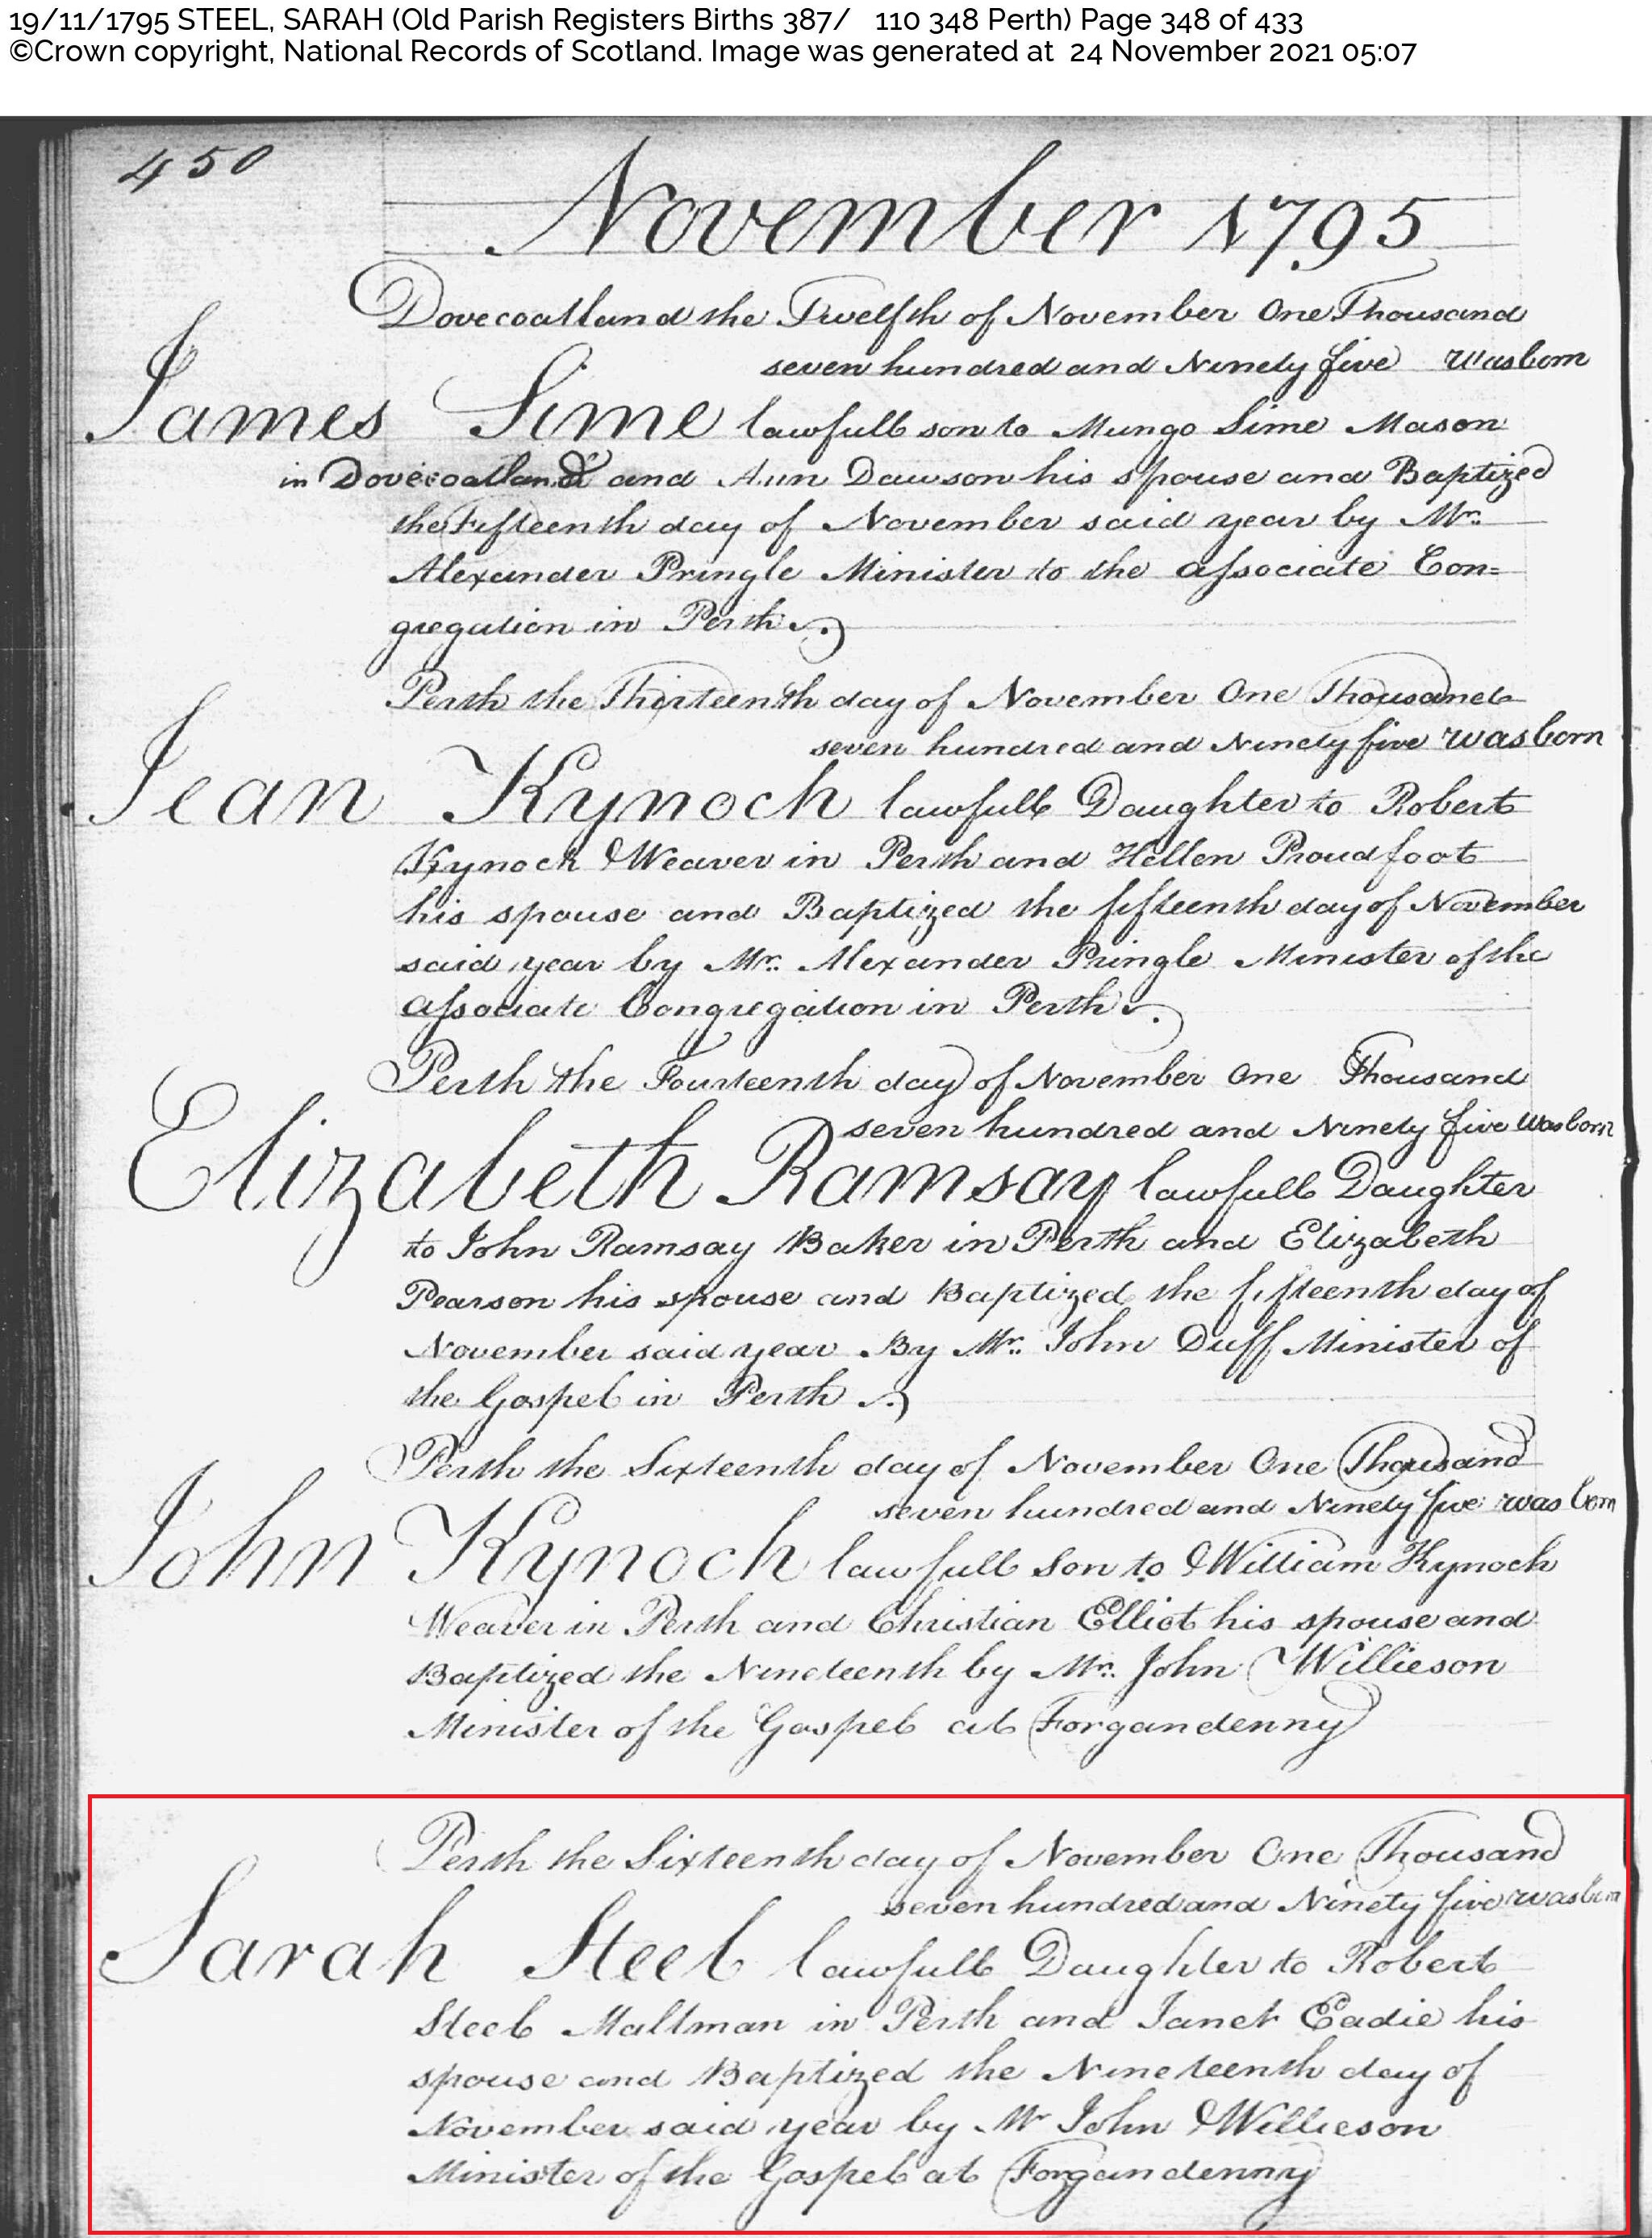 19/11/1795 STEEL, SARAH (Old Parish Registers Births 387/ 110 348 Perth) Page 348 of 433
©Crown copyright, National Records of Scotland. Image was generated at 24 November 2021 05:07
450
November 1795
Dovecoatland the Twelfth of November One Thousand
seven hundred and Ninety five was born
James Sime lawfull son to Mungo Sime Mason
in Dovecoatland and Ann Dawson his spouse and Baptized
the Fifteenth day of November said year by Mr.
Alexander Pringle Minister to the associate Con=
gregation in Perth
Perth the Thirteenth day of November One Thousand
seven hundred and Ninety five was born
Jean Kynoch lawfull Daughter to Robert
Kynoch Weaver in Perth and Hellen Proudfoot
his spouse and Baptized the fifteenth day of November
said year by Mr. Alexander Pringle Minister of the
associate Congregation in Perth.
Perth the Fourteenth day of November One Thousand
seven hundred and Ninety five was born
Elizabeth Ramsay lawfull Daughter
to John Ramsay Baker in Perth and Elizabeth
Pearson his spouse and Baptized the fifteenth day of
November said year By Mr. John Duff Minister of
the Gospel in Perth
Perth the Sixteenth day of November One Thousand
seven hundred and Ninety five was born
John Kynoch lawfull Son to William Kynoch
Weaver in Perth and Christian Elliot his spouse and
Baptized the Nineteenth by Mr. John Willieson
Minister of the Gospel at Forgandenny
Perth the Sixteenth day of November One Thousand
seven hundred and Ninety five was born
Sarah Steel lawfull Daughter to Robert
Steel Maltman in Perth and Janet Eadie his
spouse and Baptized the Nineteenth day of
November said year by Mr John Willieson
Minister of the Gospel at Forgandenny